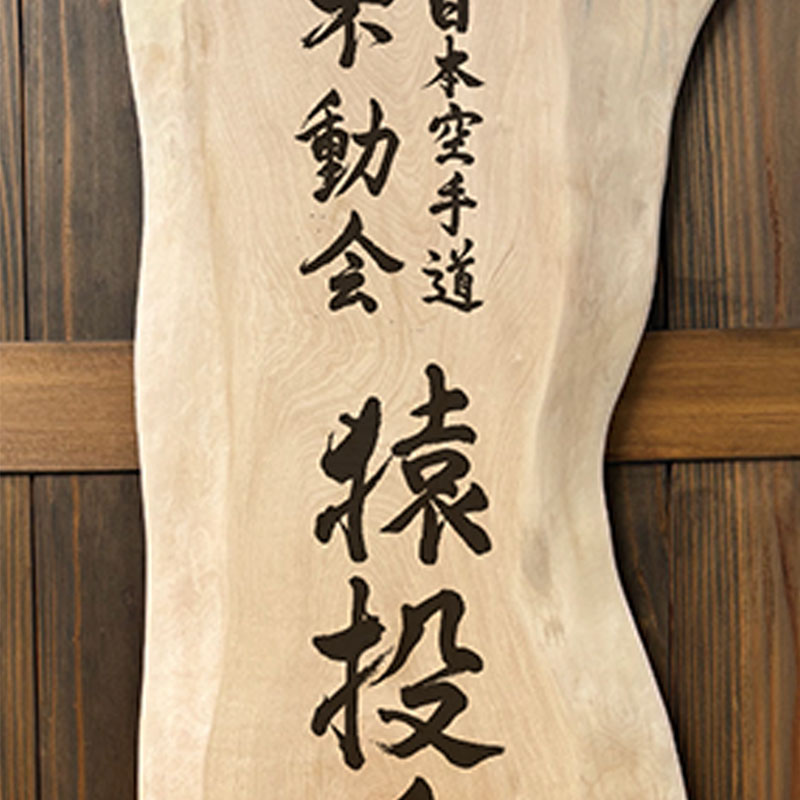 日本空手道
不動会
猿投